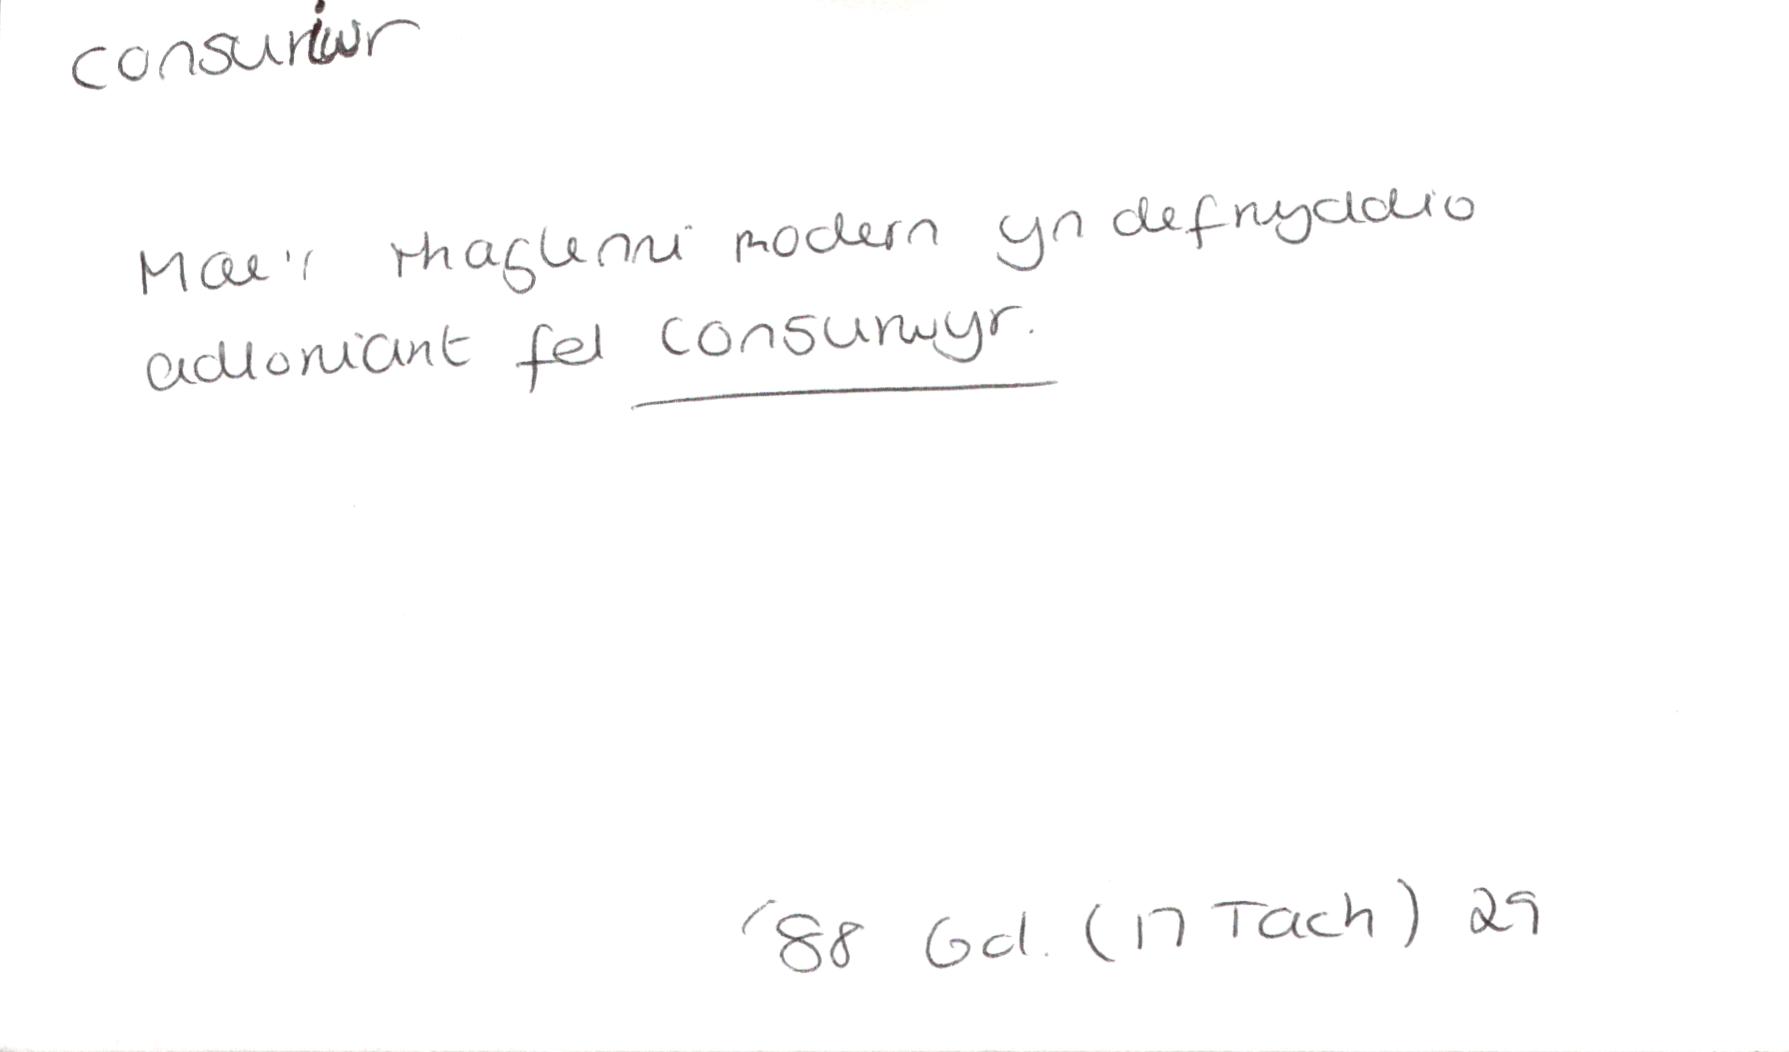 consuriwr
Mae'r rhaglenni modern yn defnyddio
adloniant fel consurwyr.
'88 Gd. (17 Tach) 29